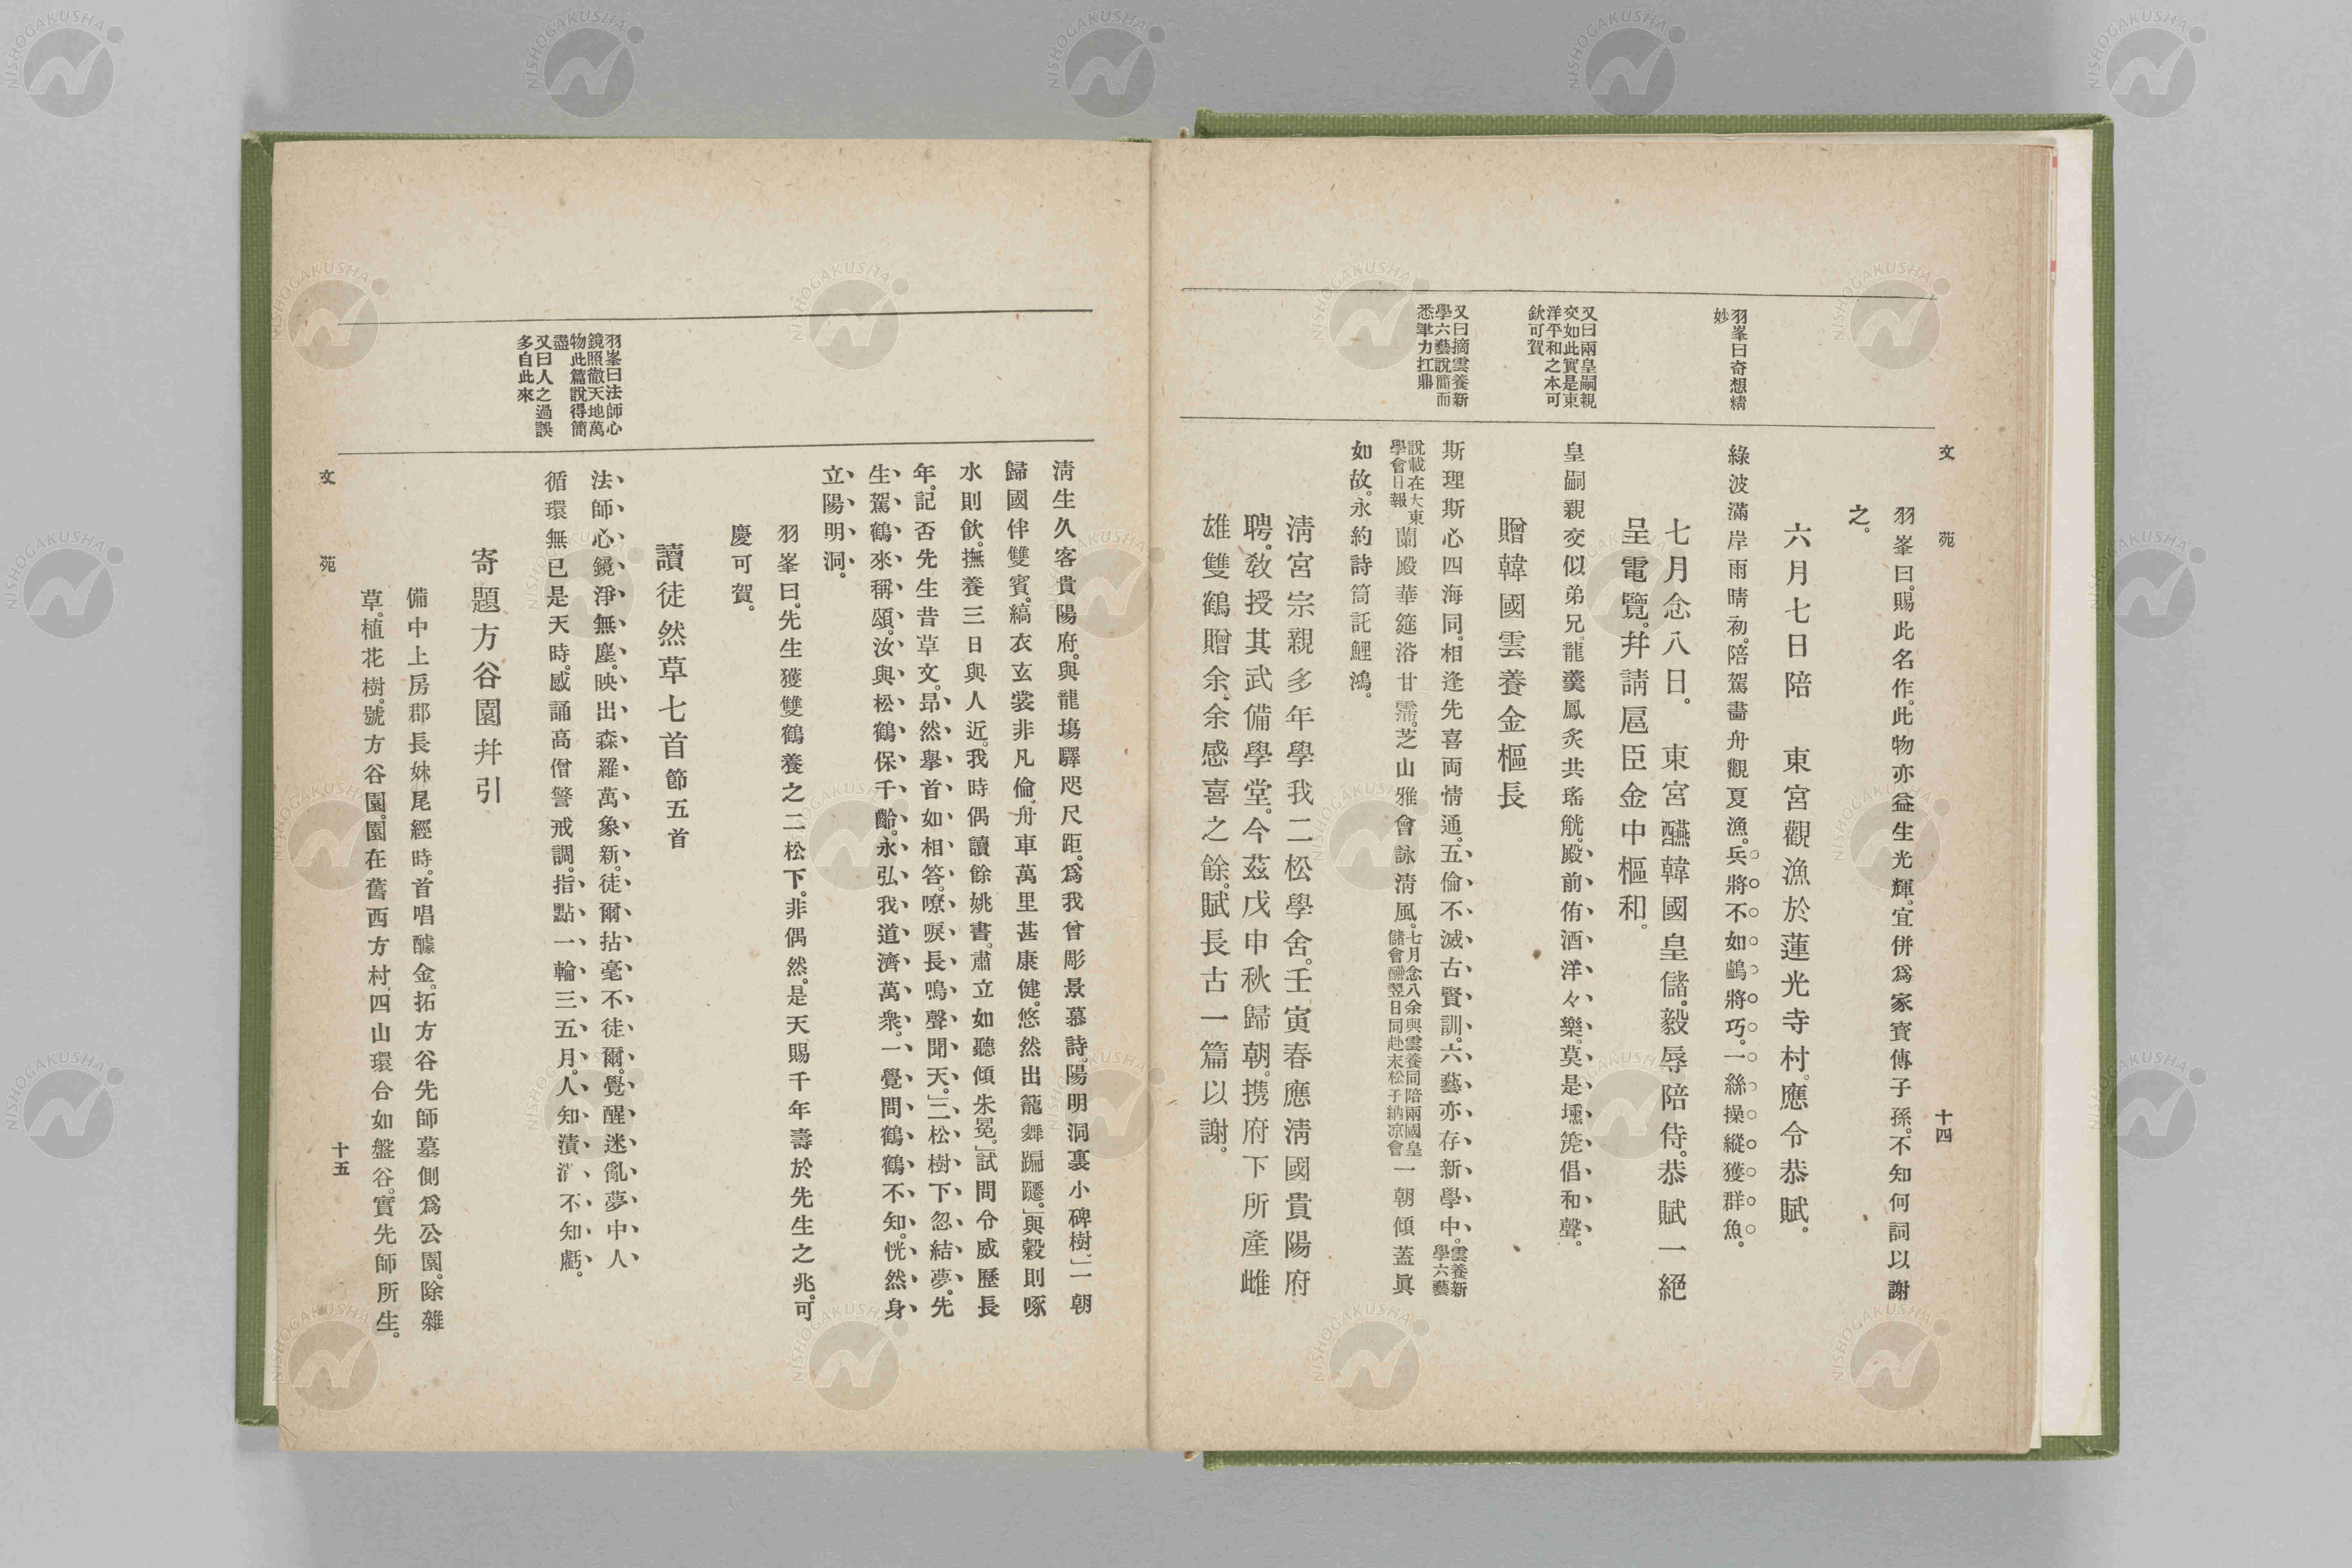 文苑
十四
羽峯曰奇想精
妙
又曰兩皇嗣親
交如此實是東
洋平和之本可
欽可賀
又曰摘雲養新
學六藝說簡而
悉筆力扛鼎
羽峯曰。賜此名作。此物亦益生光輝。宜併爲家寶傳子孫。不知何詞以謝
之。
六月七日陪　東宮觀漁於蓮光寺村。應令恭賦。
綠波滿岸雨晴初。陪駕畵舟觀夏漁。兵將不如鸕將巧。一絲操縱獲群魚。
七月念八日。　東宮醼韓國皇儲。毅辱陪侍。恭賦一絕
呈電覽。幷請扈臣金中樞和。
皇嗣親交似弟兄。龍羹鳳炙共瑤觥。殿前侑酒洋々樂。莫是壎箎倡和聲。
贈韓國雲養金樞長
斯理斯心四海同。相逢先喜兩情通。五倫不滅古賢訓。六藝亦存新學中。雲養新
學六藝
說載在大東
學會日報
蘭殿華筵浴甘霈。芝山雅會詠淸風。七月念八余與雲養同陪兩國皇
儲會醼翌日同赴末松子納凉會
一朝傾蓋眞
如故。永約詩筒託鯉鴻。
淸宮宗親多年學我二松學舍。壬寅春應淸國貴陽府
聘。敎授其武備學堂。今茲戊申秋歸朝。携府下所產雌
雄雙鶴贈余、余感喜之餘。賦長古一篇以謝。
淸生久客貴陽府。與龍塲驛咫尺距。爲我曾彫景慕詩。陽明洞裏小碑樹。」一朝
歸國伴雙賓。縞衣玄裳非凡倫。舟車萬里甚康健。悠然出籠舞蹁躚。」與穀則啄
水則飮。撫養三日與人近。我時偶讀餘姚書。肅立如聽傾朱冕。」試問令威歷長
年。記否先生昔草文。昂然擧首如相答。嘹唳長鳴聲聞天。」二松樹下忽結夢。先
生駕鶴來稱頌。汝與松鶴保千齡。永弘我道濟萬衆。一覺問鶴鶴不知。恍然身
立陽明洞。
羽峯曰。先生獲雙鶴養之二松下。非偶然。是天賜千年壽於先生之兆。可
慶可賀。
讀徒然草七首節五首
羽峯曰法師心
鏡照徹天地萬
物此篇說得簡
盡
又曰人之過誤
多自此來
法師心鏡淨無塵。映出森羅萬象新。徒爾拈毫不徒爾。覺醒迷亂夢中人
循環無已是天時。感誦高僧警戒調。指點一輪三五月。人知漬不知虧。
寄題方谷園幷引
備中上房郡長妹尾經時。首唱醵金。拓方谷先師墓側爲公園。除雜
草。植花樹。號方谷園。園在舊西方村、四山環合如盤谷。實先師所生。
文苑
十五